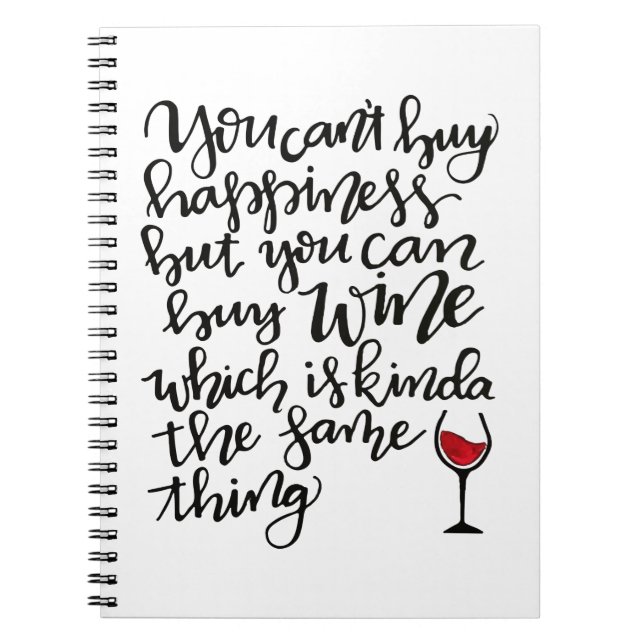 You can't buy
happiness
but you can
buy Wine
which is kinda
the same
thing